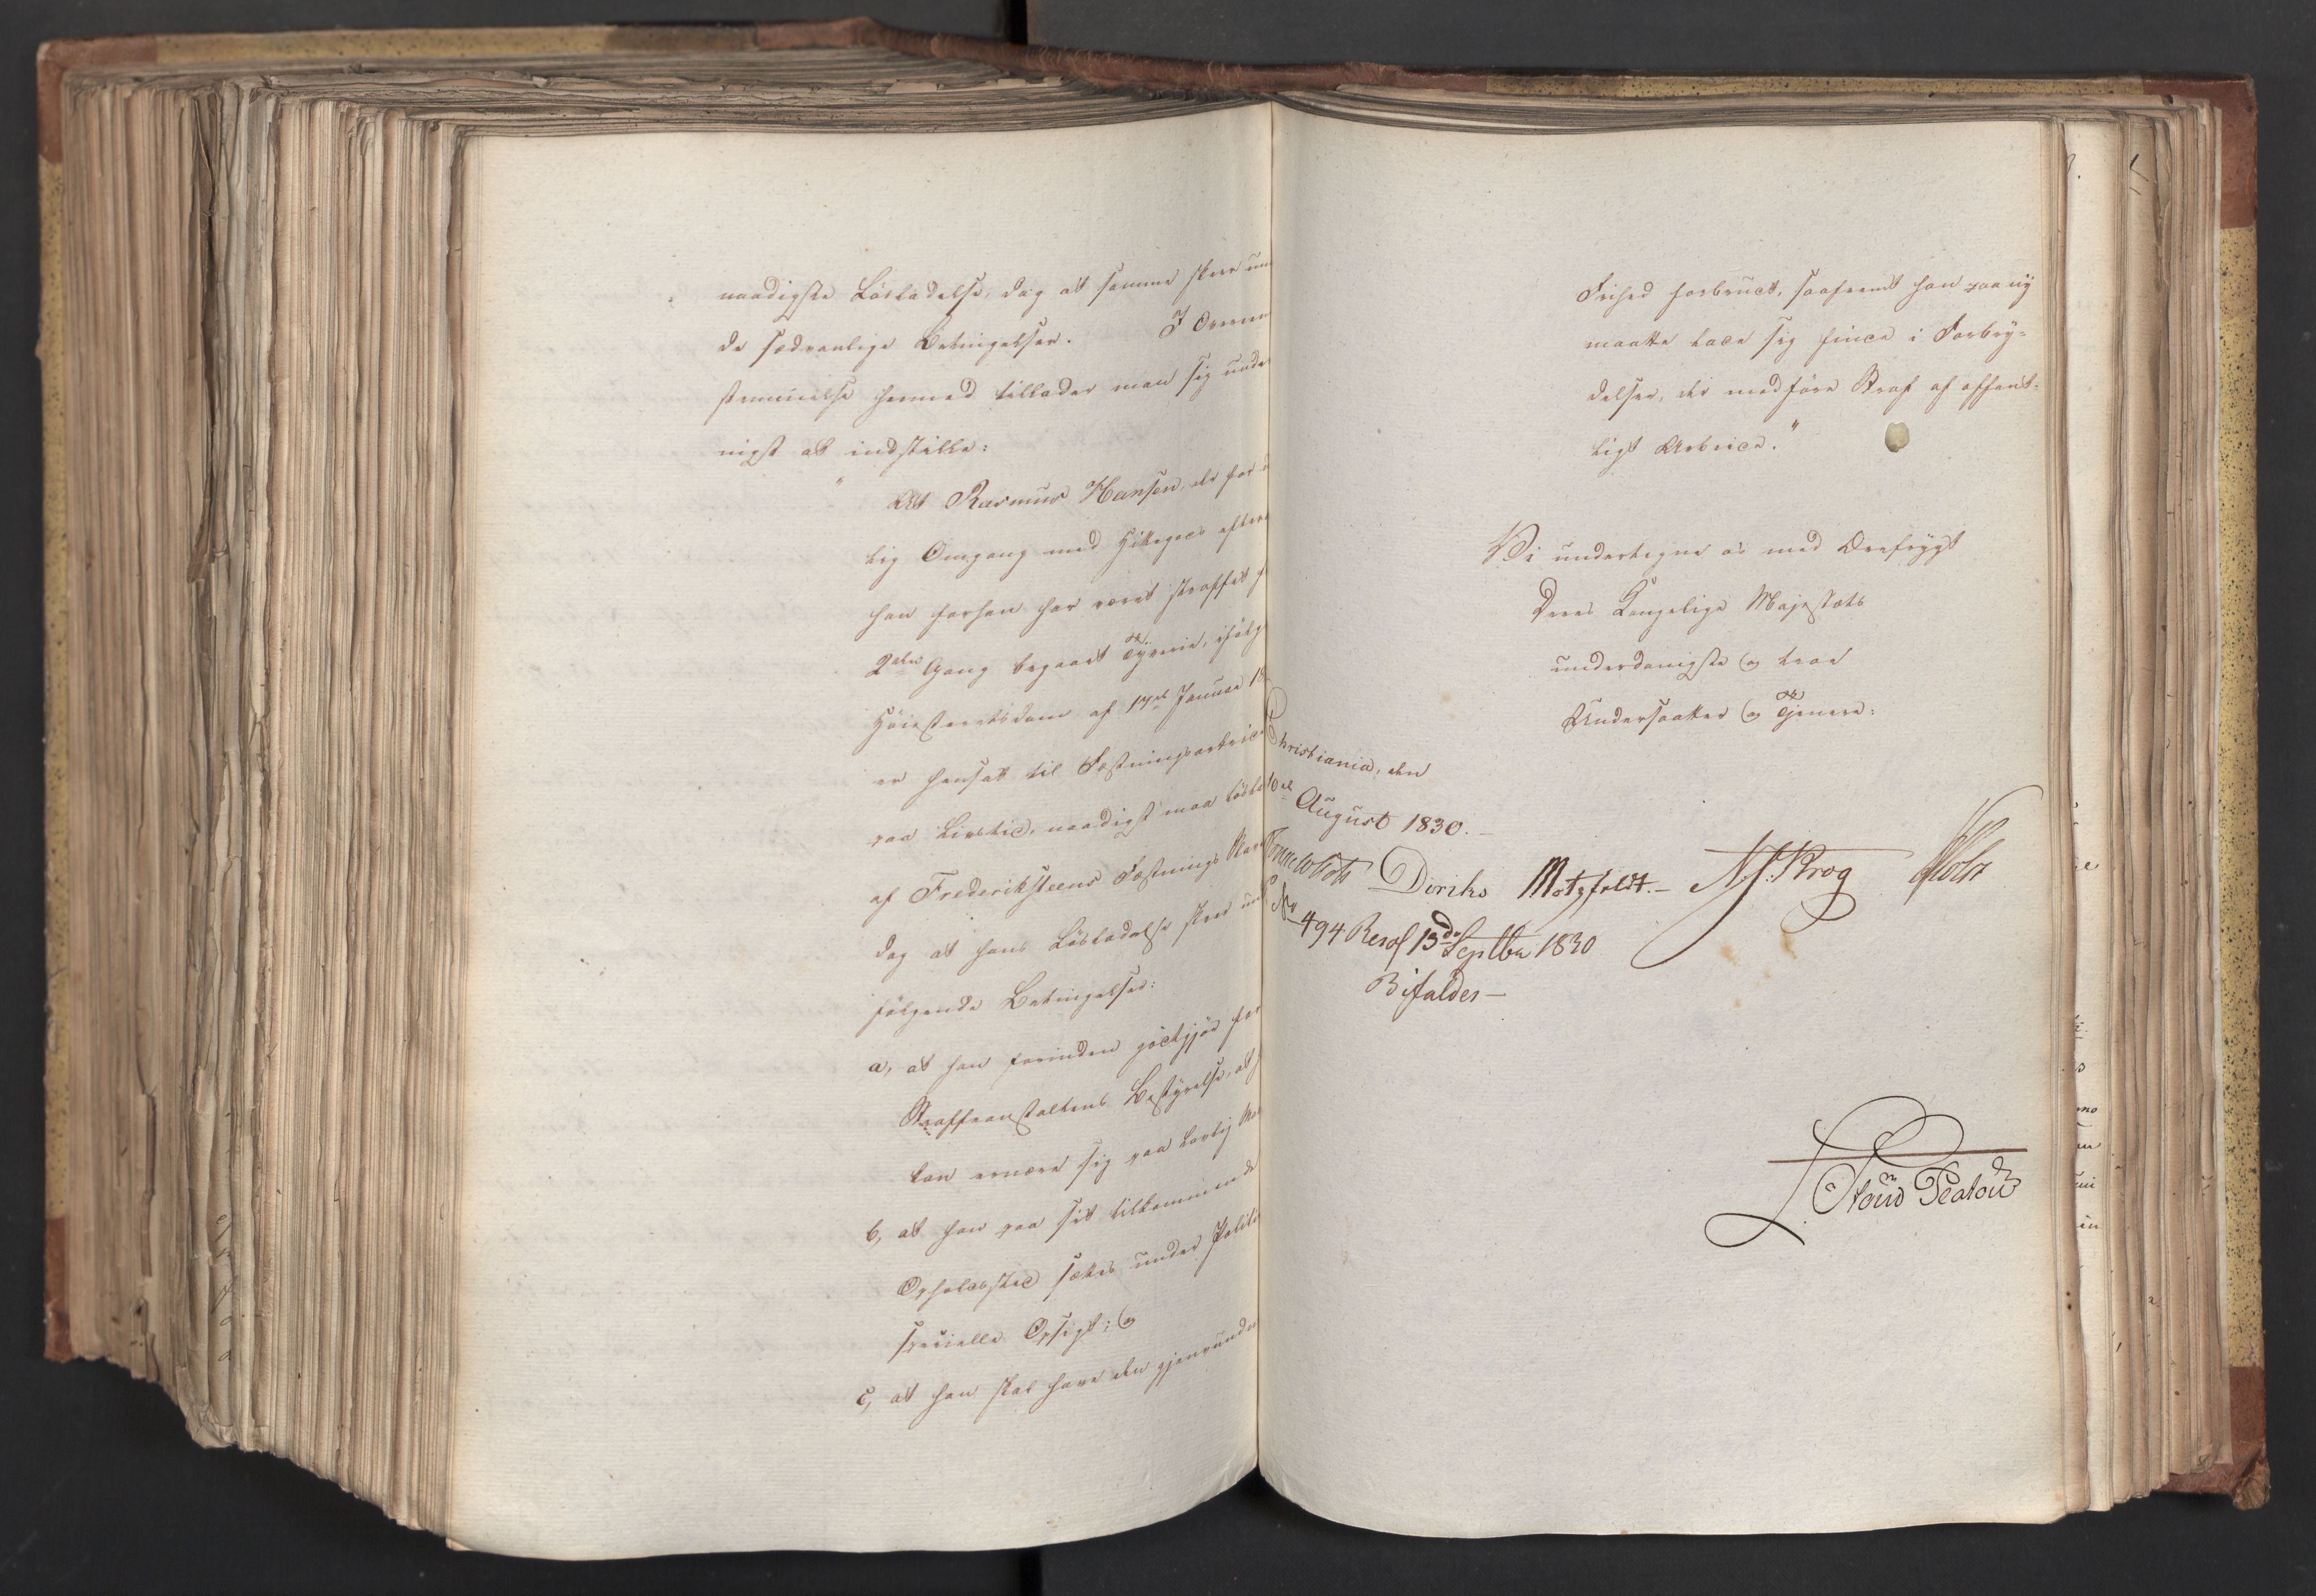 naadigste Löslædelse, dog at samme skeer un
de sædvanlige Betingelser. I Overeen
stemmelse hermed tillader man sig unde
nigst at indstille:
" At Rasmus Hansen, der for
lig Omgang med Hittegods efter
han forhen har været straffet f
2den Gang begaaet Tyverie, ifølg
Höiesteretsdom af 17de Januar 18
er hensat til Fæstningsarbeide
paa Livstid, naadigst maa lösla
af Frederiksteens Fæstnings Slav
dog at hans Lösladelse skeer und
fölgende Betingelser:
a, at han forinden godtgjör for
Straffeanstaltens Bestyrelse, at h
kan ernære sig paa lovlig Maa
b, at han paa sit tilkommende
Opholdssted sættes under Politi
specielle Opsigt; og
c, at han skal have den gjenvundn
Frihed forbrudt, saafremt han paa ny
maatte lade sig finde i Forbry-
delser, der medföre Straf af offent-
ligt Arbeide."
Vi undertegne os med Ærefrygt
Deres Kongelige Majestæts
underdanigste og troe
Undersaatter og Tjenere:
Christiania, den
10de August 1830.
Diriks Motzfeldt. Krog Holst
No 494 Resol 13de Septbr 1830
Bifaldes